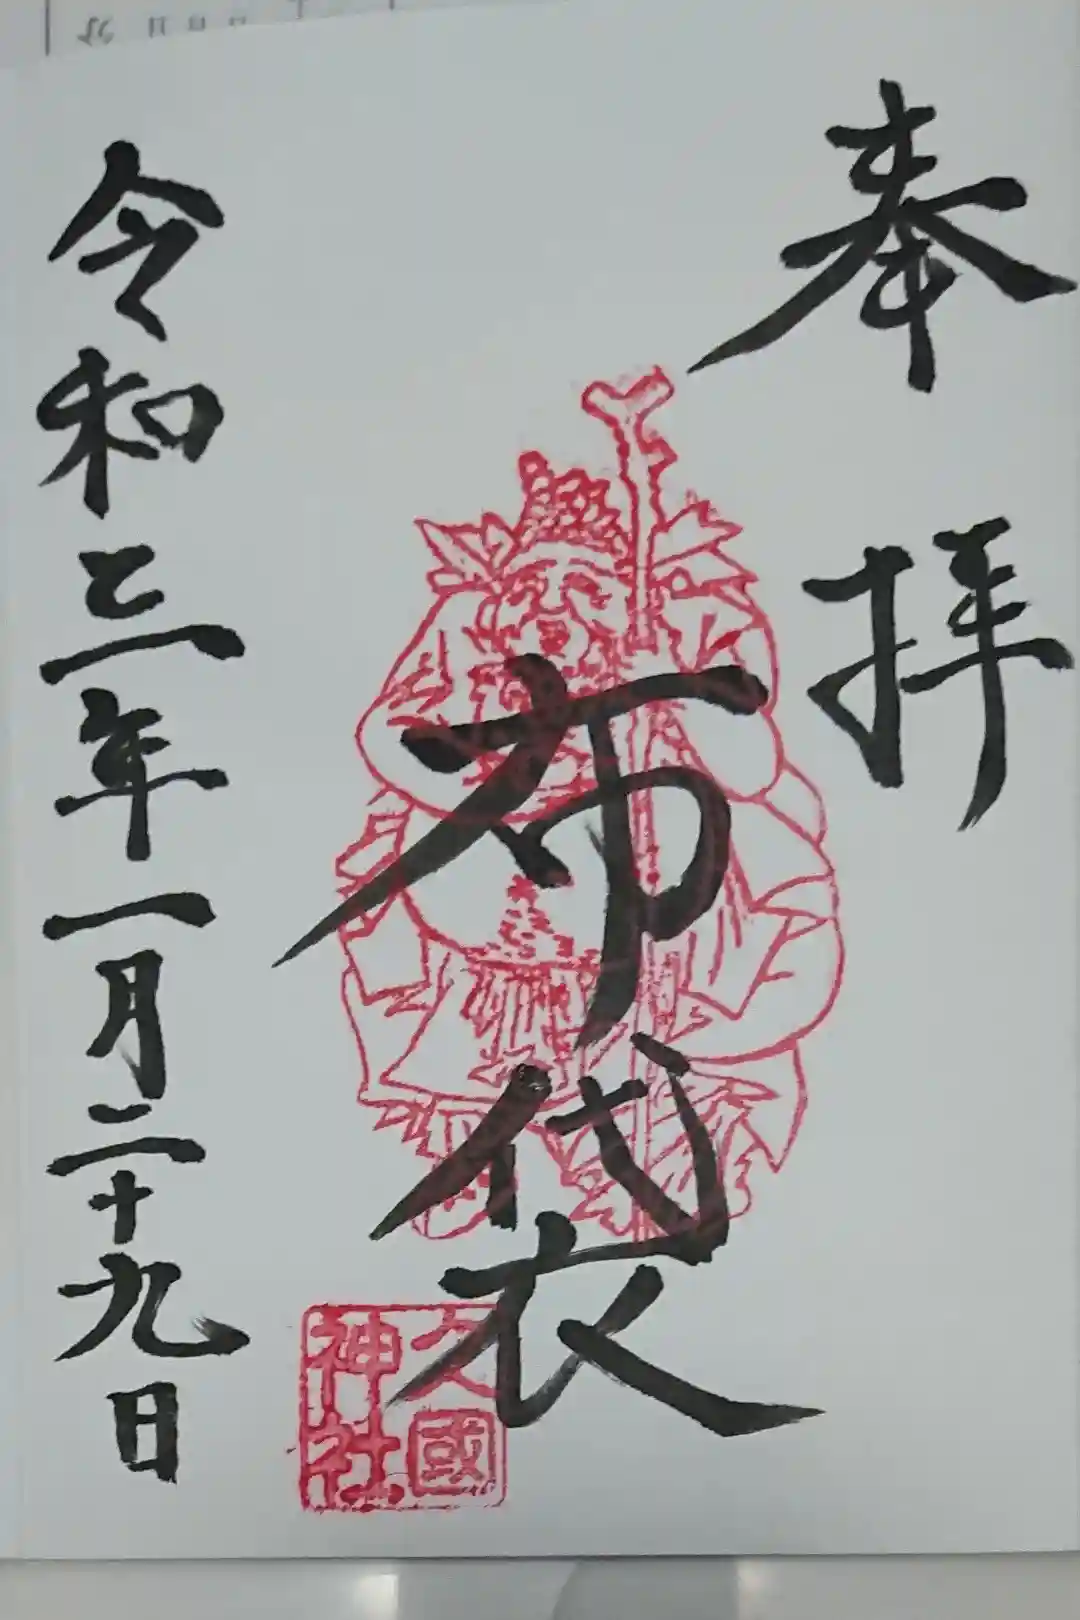 奉拝
布袋
久國
神社
令和三年一月二十九日